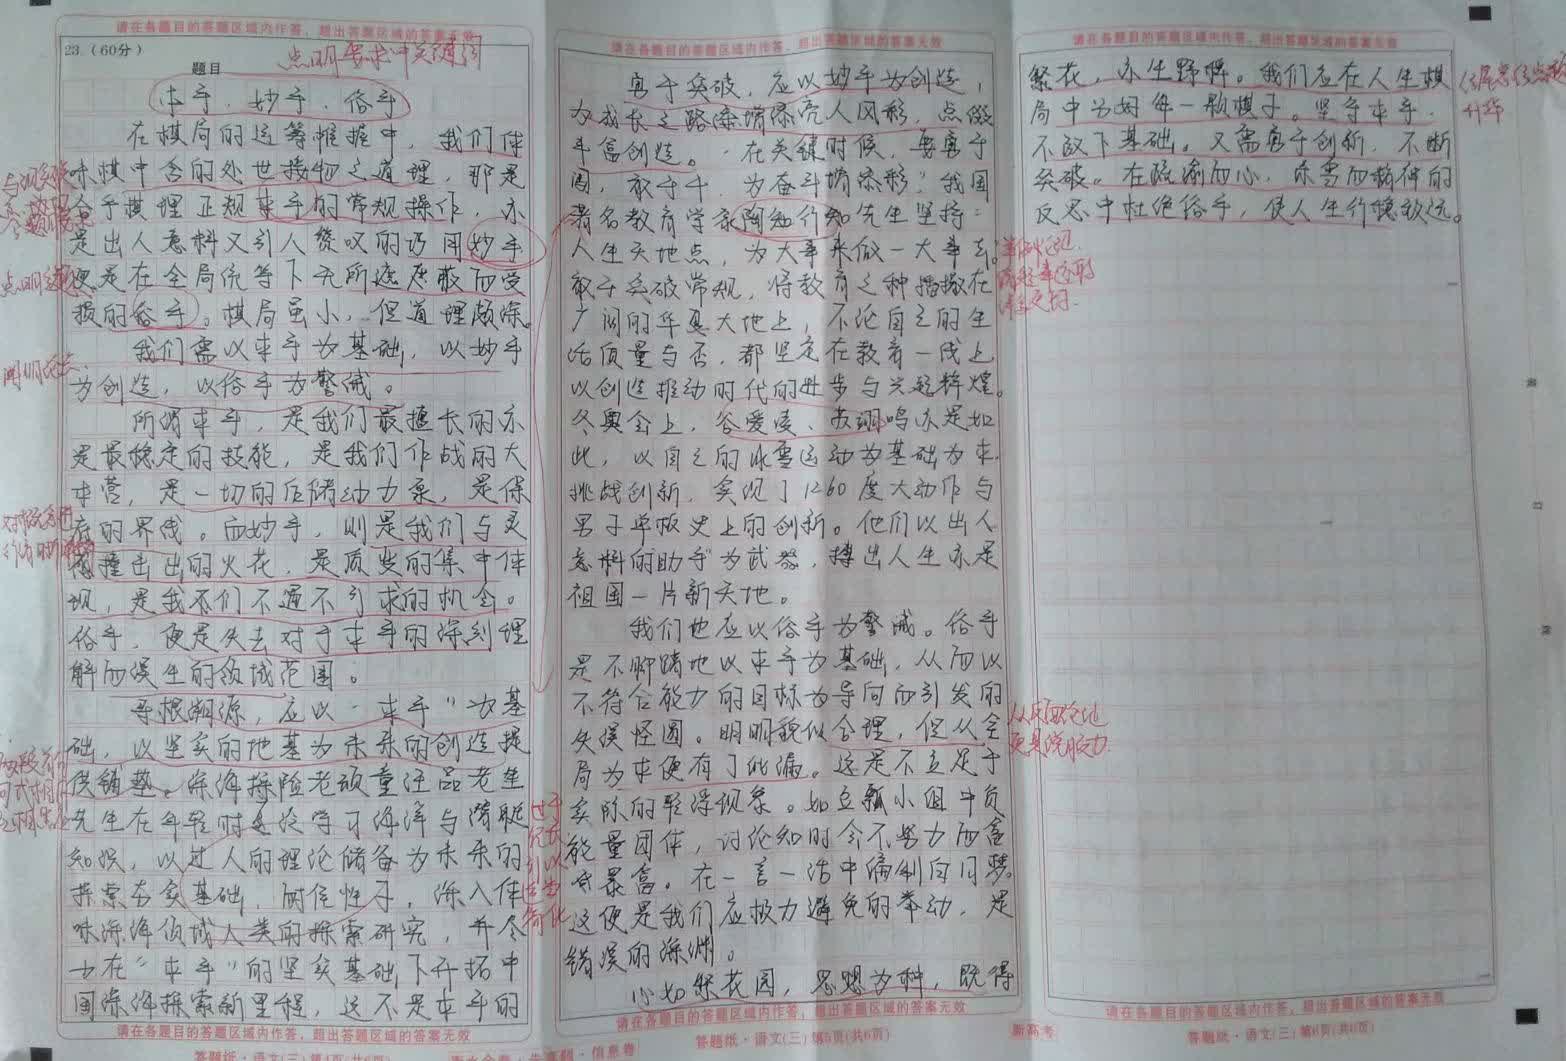 请在各题目的答题区域内作答，超出答题区域的答案无效
23.（60分）
题目
点明要求中关键词
本手、妙手、俗手
在棋局的运筹帷握中，我们体
味棋中含的处世接物之道理，那是
合乎棋理正规本手的常规操作，亦
是出人意料又引人赞叹的巧用妙手
便是在全局统筹下无所适应般而受
损的俗手。棋局虽小，但道理颇深。
我们需以本手为基础，以妙手
为创造，以俗手为警诫。
所谓本手，是我们最擅长的亦
是最稳定的技能，是我们作战的大
本营，是一切的后储动力泵，是保
底的界线。而妙手，则是我们与灵
感撞击出的火花，是质变的集中体
现，是我们不遇不可求的机会。
俗手，便是失去对于本手的深刻理
解而误生的领域范围。
寻根溯源，应以“本手”为基
础，以坚实的地基为未来的创造提
供铺垫。深海探险老顽童汪品老生
先生在年轻时是从学习海洋与潜艇
知识，以过人的理论储备为未来的
探索夯实基础，耐住性子，深入体
味深海领域人类的探索研究，并尽
力在“本手”的坚实基础下开拓中
国深海探索新里程，这不是本手的
请在各题目的答题区域内作答，超出答题区域的答案无效
答题纸·语文(三) 第4页(共6页)
请在各题目的答题区域内作答，超出答题区域的答案无效
勇于突破，应以妙手为创造，
为成长之路添增添亮人风彩，点缀
丰富创造。在关键时候，要勇于
闯，敢于干，为奋斗增添彩。我国
著名教育学家陶知行知先生坚持：
人生天地点，为大事来做一大事去。
敢于突破常规，将教育之种播撒在
广阔的华夏大地上，不论自己的生
活质量与否，都坚定在教育一线上
以创造推动时代的进步与兴起辉煌。
冬奥会上，谷爱凌、苏翊鸣亦是如
此，以自己的冰雪运动为基础为本，
挑战创新，实现了1260度大动作与
男子单板史上的创新。他们以出人
意料的“助手”为武器，搏出人生亦是
祖国一片新天地。
我们也应以俗手为警诫。俗手
是不脚踏地以本手为基础，从而以
不符合能力的目标为导向而引发的
失误怪圈。明明貌似合理，但从全
局为本便有了纰漏。这是不立足于
实际的浮浮现象。如豆瓢小组中负
能量团体，讨论如何会不努力而富
或暴富。在一言一语中编制白日梦。
这便是我们应极力避免的举动，是
错误的深渊。
心如繁花园，思想为种，既得
请在各题目的答题区域内作答，超出答题区域的答案无效
答题纸·语文(三) 第5页(共6页)
从反面论地
更具说服力
请在各题目的答题区域内作答，超出答题区域的答案无效
繁花，亦生野稗。我们应在人生棋
局中当好每一颗棋子。坚守本手，
不放下基础。又需勇于创新，不断
突破。在疏瀹而心，澡雪而精神的
反思中杜绝俗手，使人生行稳致远。
升华
请在各题目的答题区域内作答，超出答题区域的答案无效
新高考
答题纸·语文(三) 第6页(共6页)